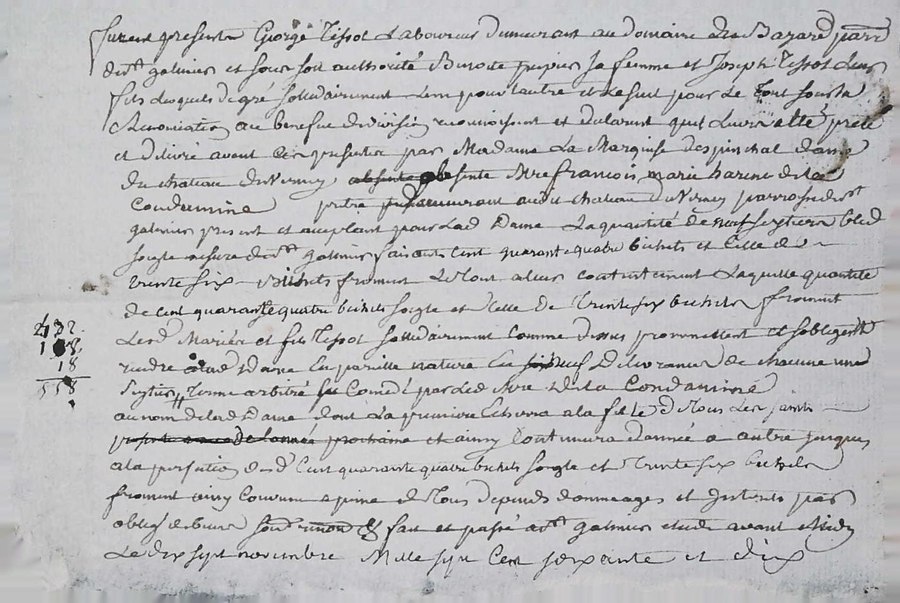 furent presents George Tissot Laboureur demeurant au domaine de Bazare parr
de st galmier et sous son authorité Benoite sa femme et Joseph Tissot leur
fils lesquels de gré solidairement l'un pour l'autre et le seul pour le tout sous la
Renonciation au benefice division reconnoissent et declarent que leur a été preté
et delivré avant ces presentes par Madame La Marquise despinchal dame
du chateau du Verney absente Mre francois marie harenc de la
Condamine pretre demeurant audit chateau du Verney parroisse de st
galmier present et acceptant pour Lad Dame La quantité de neuf septiers bled
soigle mesure de st galmier faisant Cent quarante quatre bichets et Celle de
trente six Bichets froment Le tout a leur contentement Laquelle quantité
de Cent quarante quatre bichets soigle et Celle de trente six bichets froment
Lesd Mariés et fils Tissot solidairement comme dessus promettent et s'obligent
rendre a lad Dame En pareille nature En neuf Delivrances de chacune un
Septier Terme arbitré par led Mre De La Condamine
au nom de lad Dame dont La premiere Echerra a la fete de Tous Les saints
de l'année prochaine et ainsy Continuera d'année a autre jusques
a la perfection desd Cent quarante quatre bichets soigle et trente six bichets
froment ainsy Convenu a peine de Tous depends dommages et Interets par
obligé de biens fait et passé a st galmier etude avant Midy
Le dix sept novembre Mille sept Cent soixante et dix
432
108
18
558